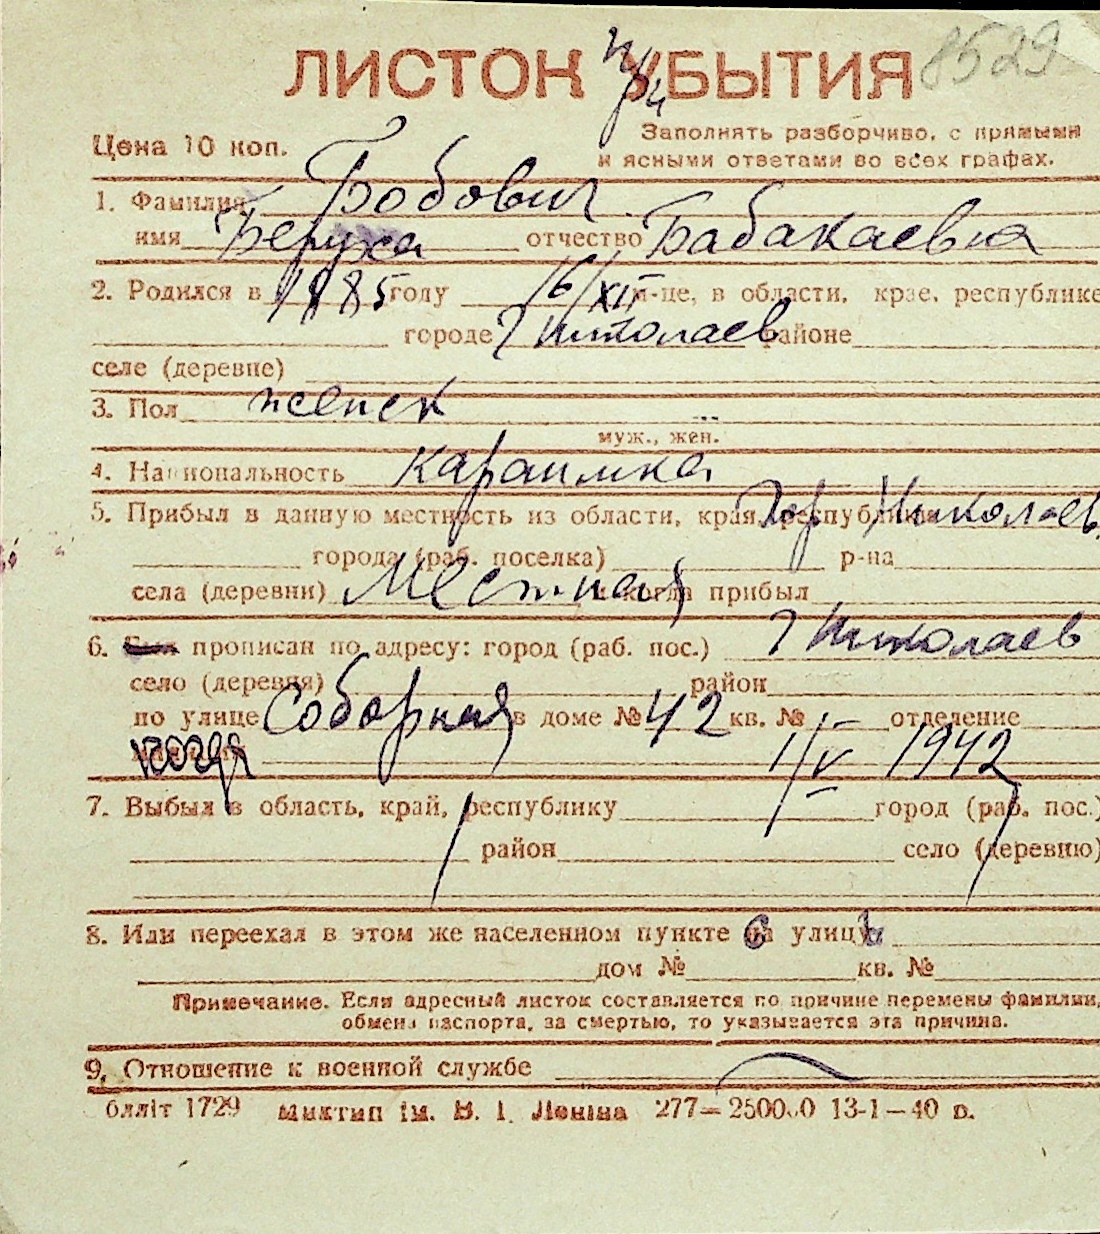 8529
ЛИСТОК УБЫТИЯ
при
Цена 10 коп.
Заполнять разборчиво, с прямыми
и ясными ответами во всех графах.
1. Фамилия Бобович
имя Беруха отчество Бабакаевна
2. Родился в 1885 году 16/XII м-це, в области, крае, республике
городе г Николаев районе
селе (деревне)
3. Пол женск
муж., жен.
4. Национальность караимка
5. Прибыл в данную местность из области, края, республики Гор Николаев
города (раб. поселка) р-на
села (деревни) Местная и когда прибыл
6. прописан по адресу: город (раб. пос.) г Николаев
село (деревня) район
по улице Соборная в доме № 42 кв. № отделение
когда 1/V 1942
7. Выбыл в область, край, республику город (раб. пос.)
район село (деревню)
8. Или переехал в этом же населенном пункте с улицы
дом № кв. №
Примечание. Если адресный листок составляется по причине перемены фамилии,
обмена паспорта, за смертью, то указывается эта причина.
9. Отношение к военной службе
блліт 1729 Миктип ім. В. І. Леніна 277—250000 13-1—40 р.